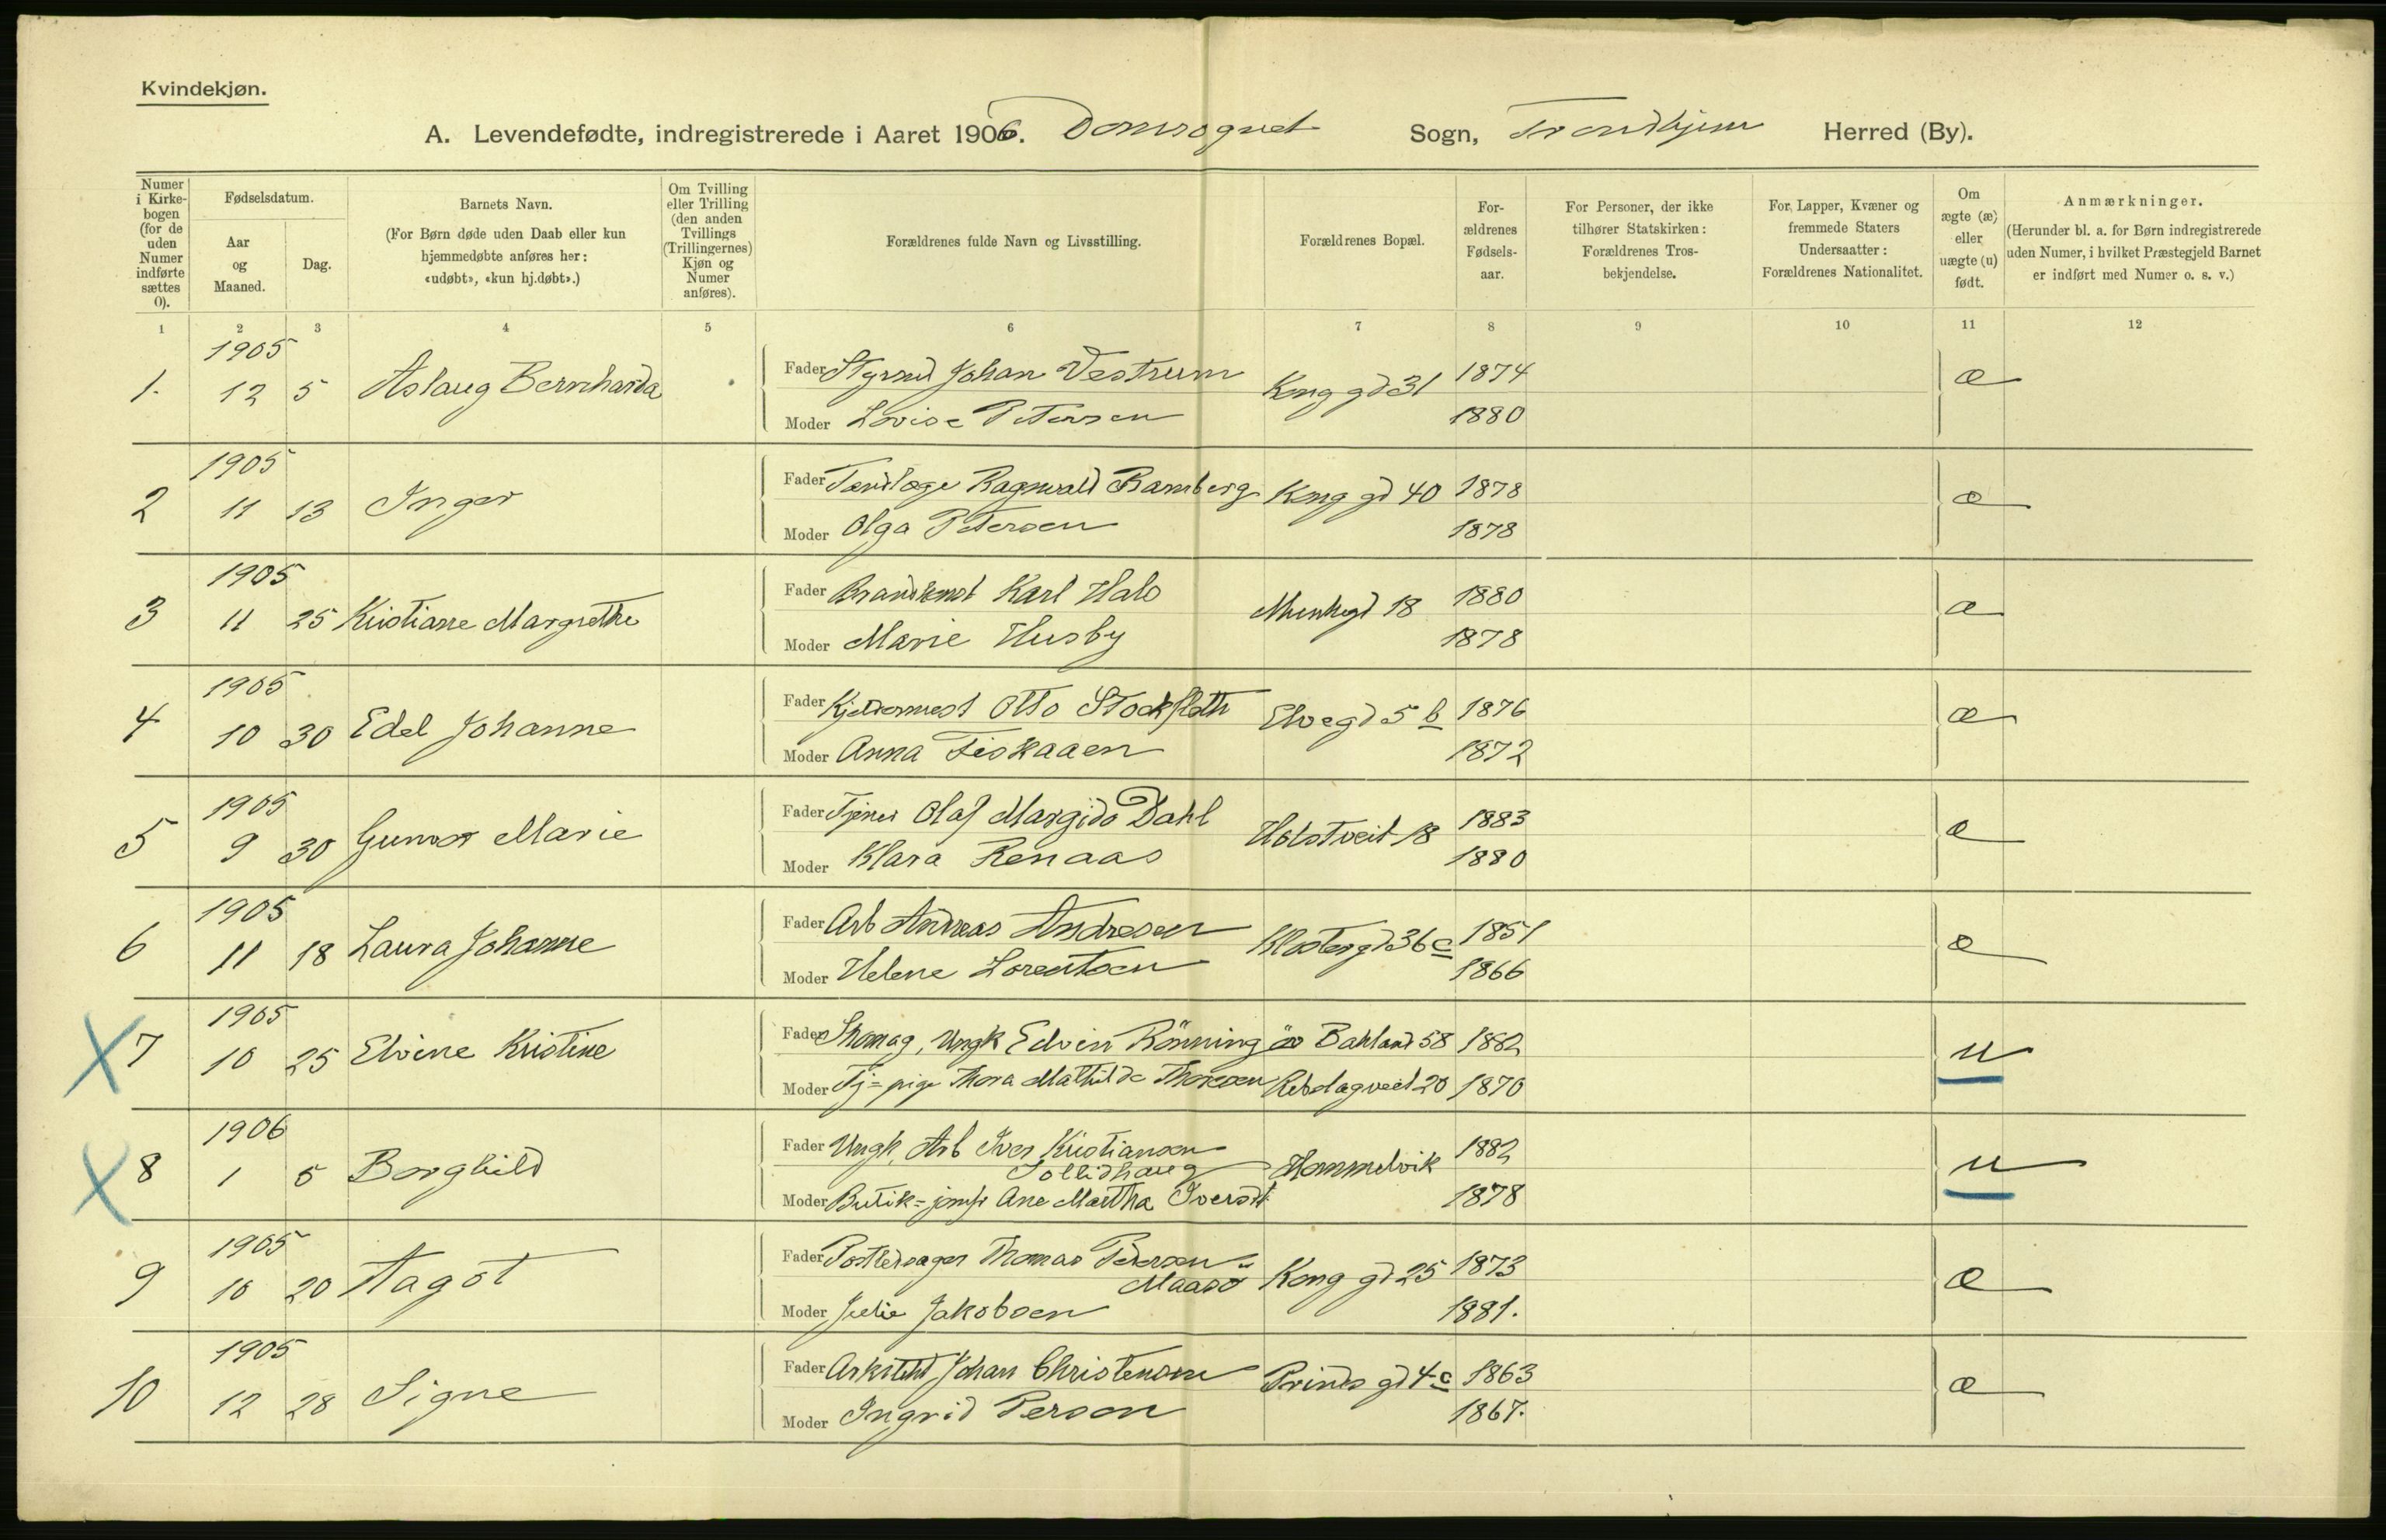 Kvindekjøn.
A. Levendefødte, indregistrerede i Aaret 1906. Domsognet Sogn, Trondhjem Herred (By).
Numer i Kirkebogen (for de uden Numer indførte sættes 0).
Fødselsdatum.
Aar og Maaned.
Dag.
Barnets Navn.
(For Børn døde uden Daab eller kun hjemmedøbte anføres her: «udøbt», «kun hj.døbt».)
Om Tvilling eller Trilling (den anden Tvillings (Trillingernes) Kjøn og Numer anføres).
Forældrenes fulde Navn og Livsstilling.
Forældrenes Bopæl.
Forældrenes Fødselsaar.
For Personer, der ikke tilhører Statskirken: Forældrenes Trosbekjendelse.
For Lapper, Kvæner og fremmede Staters Undersaatter: Forældrenes Nationalitet.
Om ægte (æ) eller uægte (u) født.
Anmærkninger.
(Herunder bl. a. for Børn indregistrerede uden Numer, i hvilket Præstegjeld Barnet er indført med Numer o. s. v.)
1 2 3 4 5 6 7 8 9 10 11 12
1905
1. 12 5 Aslaug Bernharda Fader Styrmd Johan Vestrum Kong gd 31 1874 æ
Moder Lovise Petersen 1880
1905
2 11 13 Inger Fader Tandlæge Ragnvald Bamberg Kong gd 40 1878 æ
Moder Olga Petersen 1878
1905
3 11 25 Kristiane Margrethe Fader Karl Hals Munkegd 18 1880 æ
Moder Marie Husby 1878
1905
4 10 30 Edel Johanne Fader Kjeldermest Otto Stockfleth Elvegd 5 b 1876 æ
Moder Anna Fiskaaen 1872
1905
5 9 30 Gunvor Marie Fader Tjener Olaf Margido Dahl Holstveit 18 1883 æ
Moder Klara Renaas 1880
1905
6 11 18 Laura Johanne Fader Arb Andreas Andresen Klostergd 36 c 1851 æ
Moder Helene Lorentsen 1866
1905
X 7 10 25 Elvine Kristine Fader Skomag, Ungk Edvin Rönning Bakland 58 1882 u
Moder Tj=pige Thora Mathilde Thoresen Rebslagveit 20 1870
1906
X 8 1 5 Borghild Fader Ungk, Arb Iver Kristiansen
Sollidhaug Hommelvik 1882 u
Moder Butik=jomfr Ane Martha Iversdt 1878
1905
9 10 20 Aagot Fader Postbesager Thomas Pedersen
Maasö Kong gd 25 1873 æ
Moder Julie Jakobsen 1881.
1905
10 12 28 Signe Fader Arkitekt Johan Christensen Prinds gd 4 c 1863 æ
Moder Ingrid Person 1867.